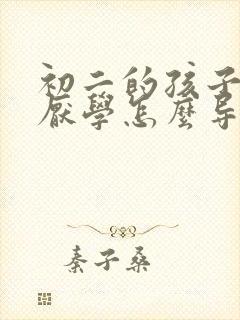 初二的孩子
厭學怎麼导
秦子桑